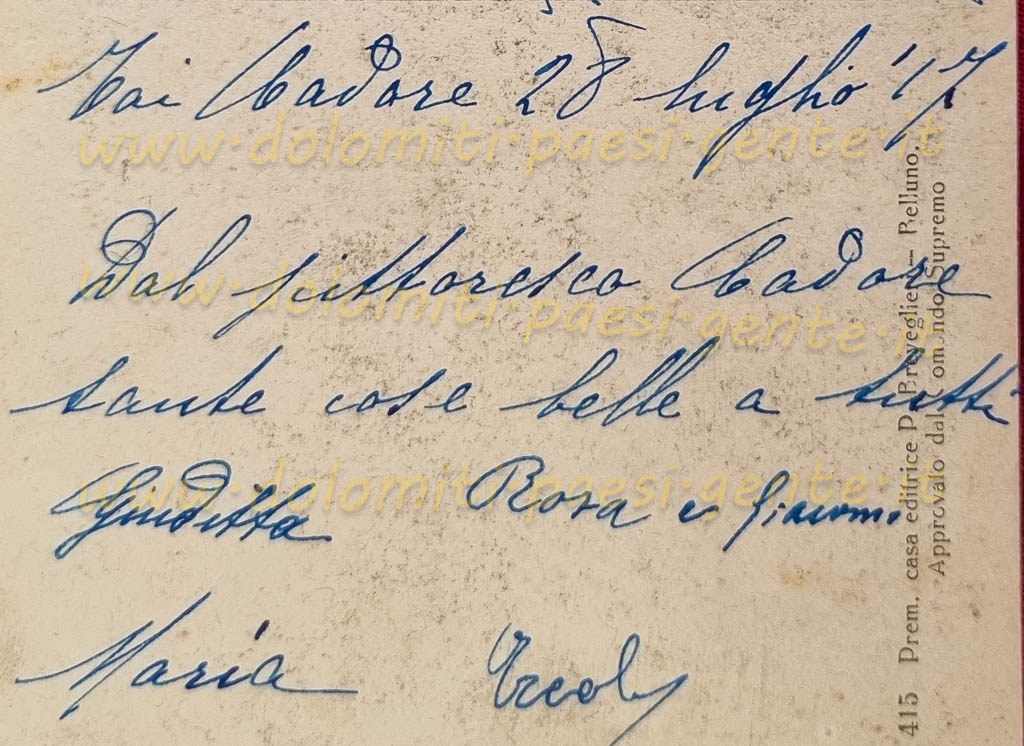 Tai Cadore 28 luglio '17
www.dolomiti-paesi-gente.it
Dal pittoresco Cadore
www.dolomiti-paesi-gente.it
tante cose belle a tutti
www.dolomiti-paesi-gente.it
Giuditta Rosa e Giacomo
Maria Ercole
415 Prem. casa editrice D. Breveglieri - Belluno.
Approvato dal Comando Supremo